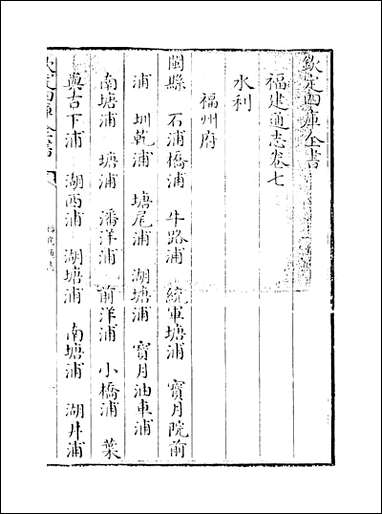 欽定四庫全書
福建通志卷七
水利
福州府
閩縣 石浦橋浦 牛路浦 統軍塘浦 寶月院前
浦 圳乾浦 塘尾浦 湖塘浦 寶月油車浦
南塘浦 塘浦 潘洋浦 前洋浦 小橋浦 葉
輿古下浦 湖西浦 湖塘浦 南塘浦 湖井浦
欽定四庫全書